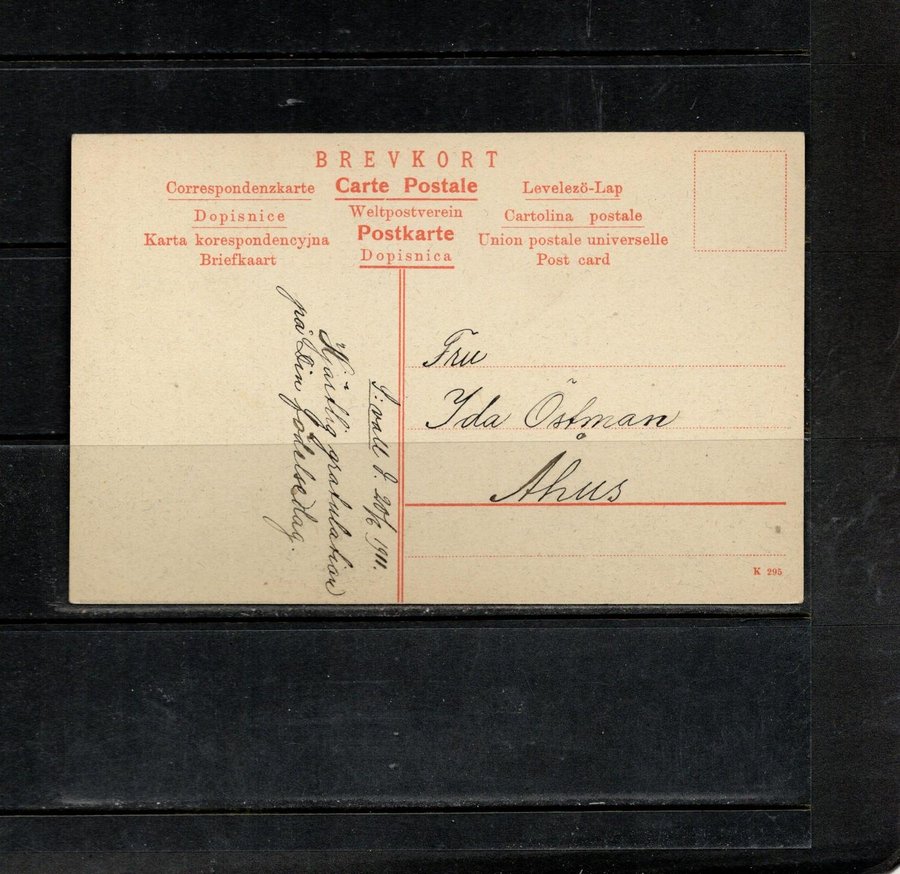 BREVKORT
Correspondenzkarte Carte Postale Levelezö-Lap
Dopisnice Weltpostverein Cartolina postale
Karta korespondencyjna Postkarte Union postale universelle
Briefkaart Dopisnica Post card
d. 20/6 1911.
Hjärtlig gratulation
på Din födelsedag.
Fru
Ida Östman
Åhus
K 295